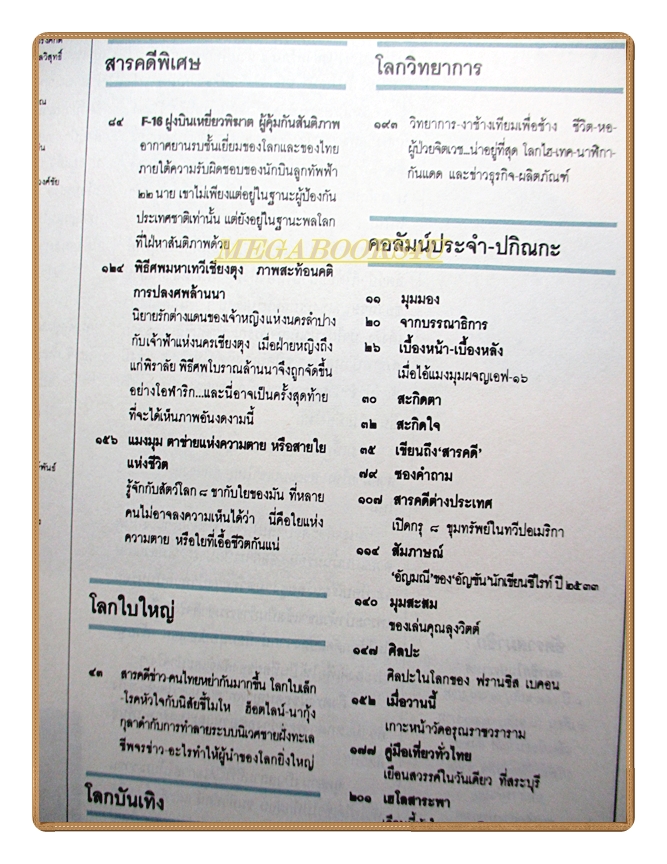 วิสุทธิ์
ณ
น
วงศ์ชัย
พันธ์
สารคดีพิเศษ
๘๔ F-16 ฝูงบินเหยี่ยวพิฆาต ผู้คุ้มกันสันติภาพ
อากาศยานรบชั้นเยี่ยมของโลกและของไทย
ภายใต้ความรับผิดชอบของนักบินลูกทัพฟ้า
๒๒ นาย เขาไม่เพียงแต่อยู่ในฐานะผู้ป้องกัน
ประเทศชาติเท่านั้น แต่ยังอยู่ในฐานะพลโลก
ที่ใฝ่หาสันติภาพด้วย
๑๒๔ พิธีศพมหาเทวีเชียงตุง ภาพสะท้อนคติ
การปลงศพล้านนา
นิยายรักต่างแดนของเจ้าหญิงแห่งนครลำปาง
กับเจ้าฟ้าแห่งนครเชียงตุง เมื่อฝ่ายหญิงถึง
แก่พิราลัย พิธีศพโบราณล้านนาจึงถูกจัดขึ้น
อย่างโอฬาริก...และนี่อาจเป็นครั้งสุดท้าย
ที่จะได้เห็นภาพอันงดงามนี้
๑๕๖ แมงมุม ตาข่ายแห่งความตาย หรือสายใย
แห่งชีวิต
รู้จักกับสัตว์โลก ๘ ขากับใยของมัน ที่หลาย
คนไม่อาจลงความเห็นได้ว่า นี่คือใยแห่ง
ความตาย หรือใยที่เอื้อชีวิตกันแน่
โลกใบใหญ่
๔๓ สารคดีข่าว-คนไทยหย่ากันมากขึ้น โลกใบเล็ก
-โรคหัวใจกับนิสัยขี้โมโห ฮ็อตไลน์-นากุ้ง
กุลาดำกับการทำลายระบบนิเวศชายฝั่งทะเล
ชีพจรข่าว-อะไรทำให้ผู้นำของโลกยิ่งใหญ่
โลกบันเทิง
โลกวิทยาการ
๑๙๓ วิทยาการ-งาช้างเทียมเพื่อช้าง ชีวิต-หอ-
ผู้ป่วยจิตเวช...น่าอยู่ที่สุด โลกไฮ-เทค-นาฬิกา-
กันแดด และข่าวธุรกิจ-ผลิตภัณฑ์
MEGABOOKS4U
คอลัมน์ประจำ-ปกิณกะ
๑๑ มุมมอง
๒๐ จากบรรณาธิการ
๒๖ เบื้องหน้า-เบื้องหลัง
เมื่อไอ้แมงมุมผจญเอฟ-๑๖
๓๐ สะกิดตา
๓๒ สะกิดใจ
๓๕ เขียนถึง‘สารคดี’
๗๙ ซองคำถาม
๑๐๗ สารคดีต่างประเทศ
เปิดกรุ ๘ ขุมทรัพย์ในทวีปอเมริกา
๑๑๔ สัมภาษณ์
‘อัญมณี’ของ‘อัญชัน’นักเขียนซีไรท์ ปี ๒๕๓๓
๑๔๐ มุมสะสม
ของเล่นคุณลุงวิตต์
๑๔๗ ศิลปะ
ศิลปะในโลกของ ฟรานซิส เบคอน
๑๕๒ เมื่อวานนี้
เกาะหน้าวัดอรุณราชวราราม
๑๗๗ คู่มือเที่ยวทั่วไทย
เยือนสวรรค์ในวันเดียว ที่สระบุรี
๒๐๑ เฮโลสาระพา